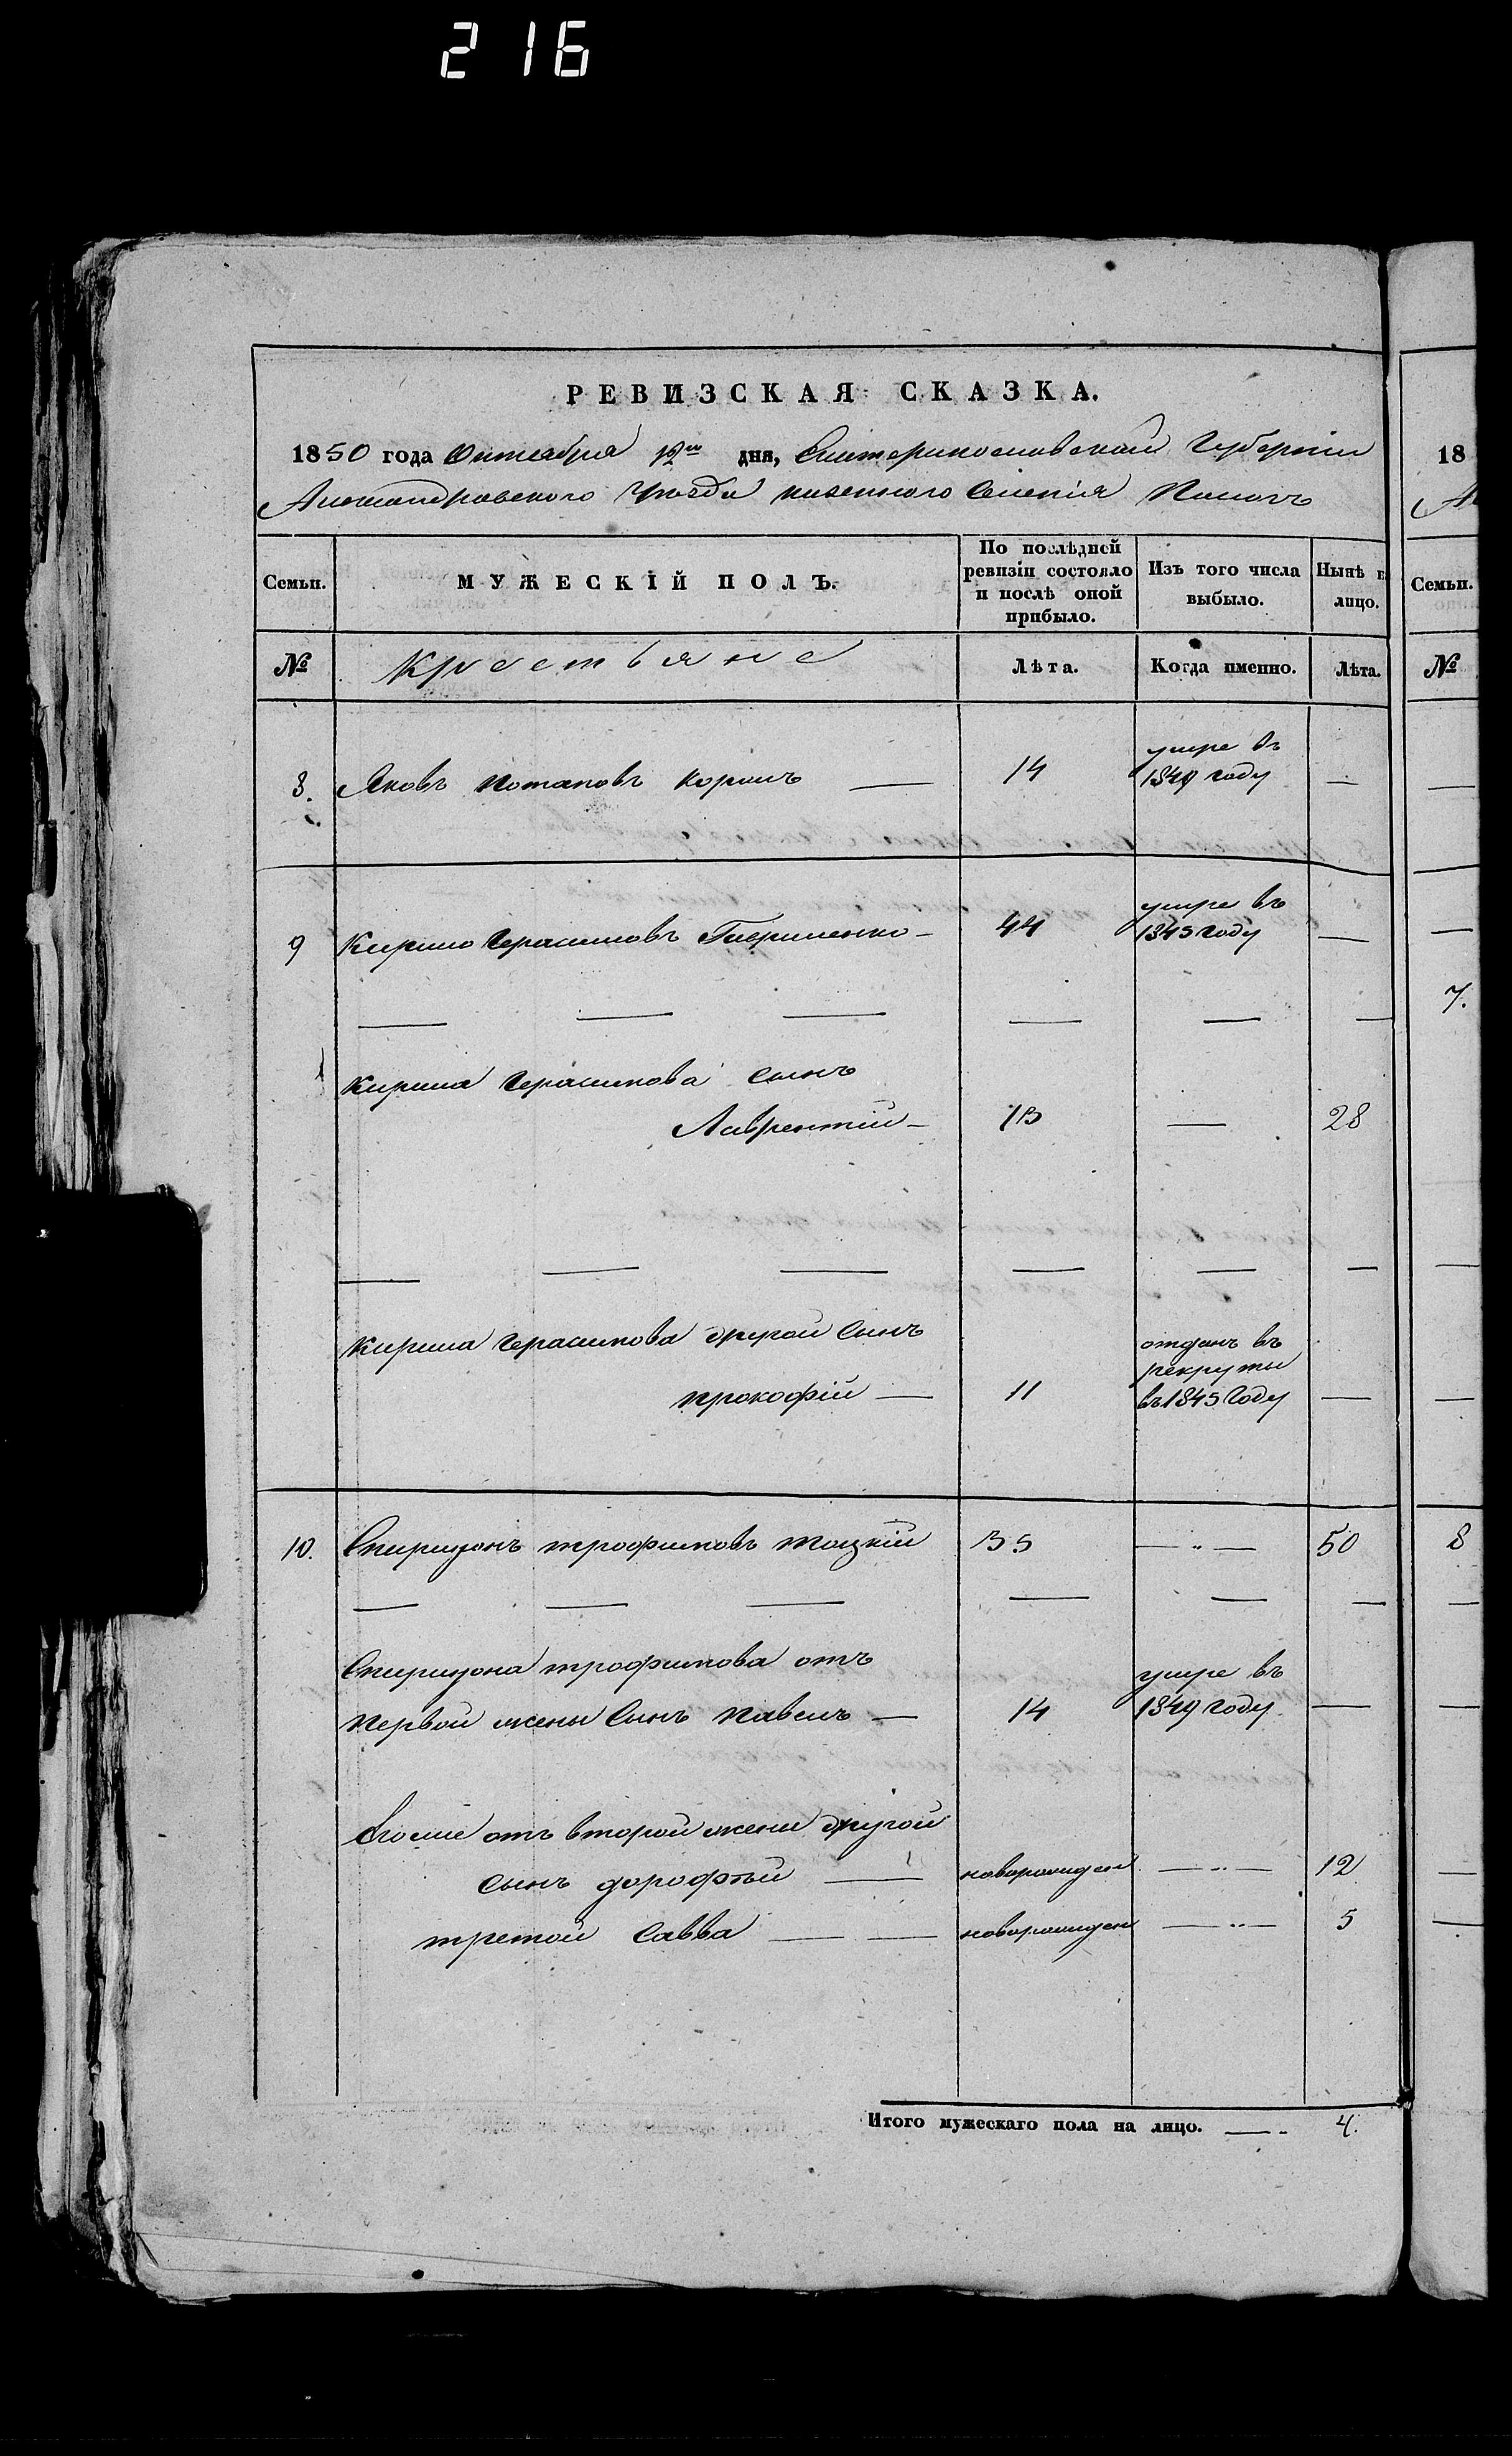 216
РЕВИЗСКАЯ СКАЗКА.
1850 года Октября дня, Екатеринославской Губерніи
Александровского Уезда казенного Селенія
Семьи.
МУЖЕСКІЙ ПОЛЪ.
По послѣдней ревизіи состояло и послѣ оной прибыло.
Изъ того числа выбыло.
Нынѣ на лицо.
№
Крестьяне
Лѣта.
Когда именно.
Лѣта.
8. Яковъ Потаповъ Король — 14 умре въ 1849 году —
9 Кирило Герасимовъ Гавриленко — 44 умре въ 1845 году —
Кирила Герасимова сынъ
Лаврентій — 13 — 28
Кирила Герасимова другой Сынъ
Прокофій — 11 отданъ въ рекруты въ 1845 Году —
10. Спиридонъ Трофимовъ Тоцкій 35 — „ — 50
Спиридона Трофимова отъ
Первой жены Сынъ Павелъ — 14 умре въ 1849 году —
Его же отъ второй жены другой
сынъ дорофѣй — новорожден — „ — 12
третой Савва — — новорожден — „ — 5
Итого мужескаго пола на лицо. — 4.
18
Семьи.
№
7.
8